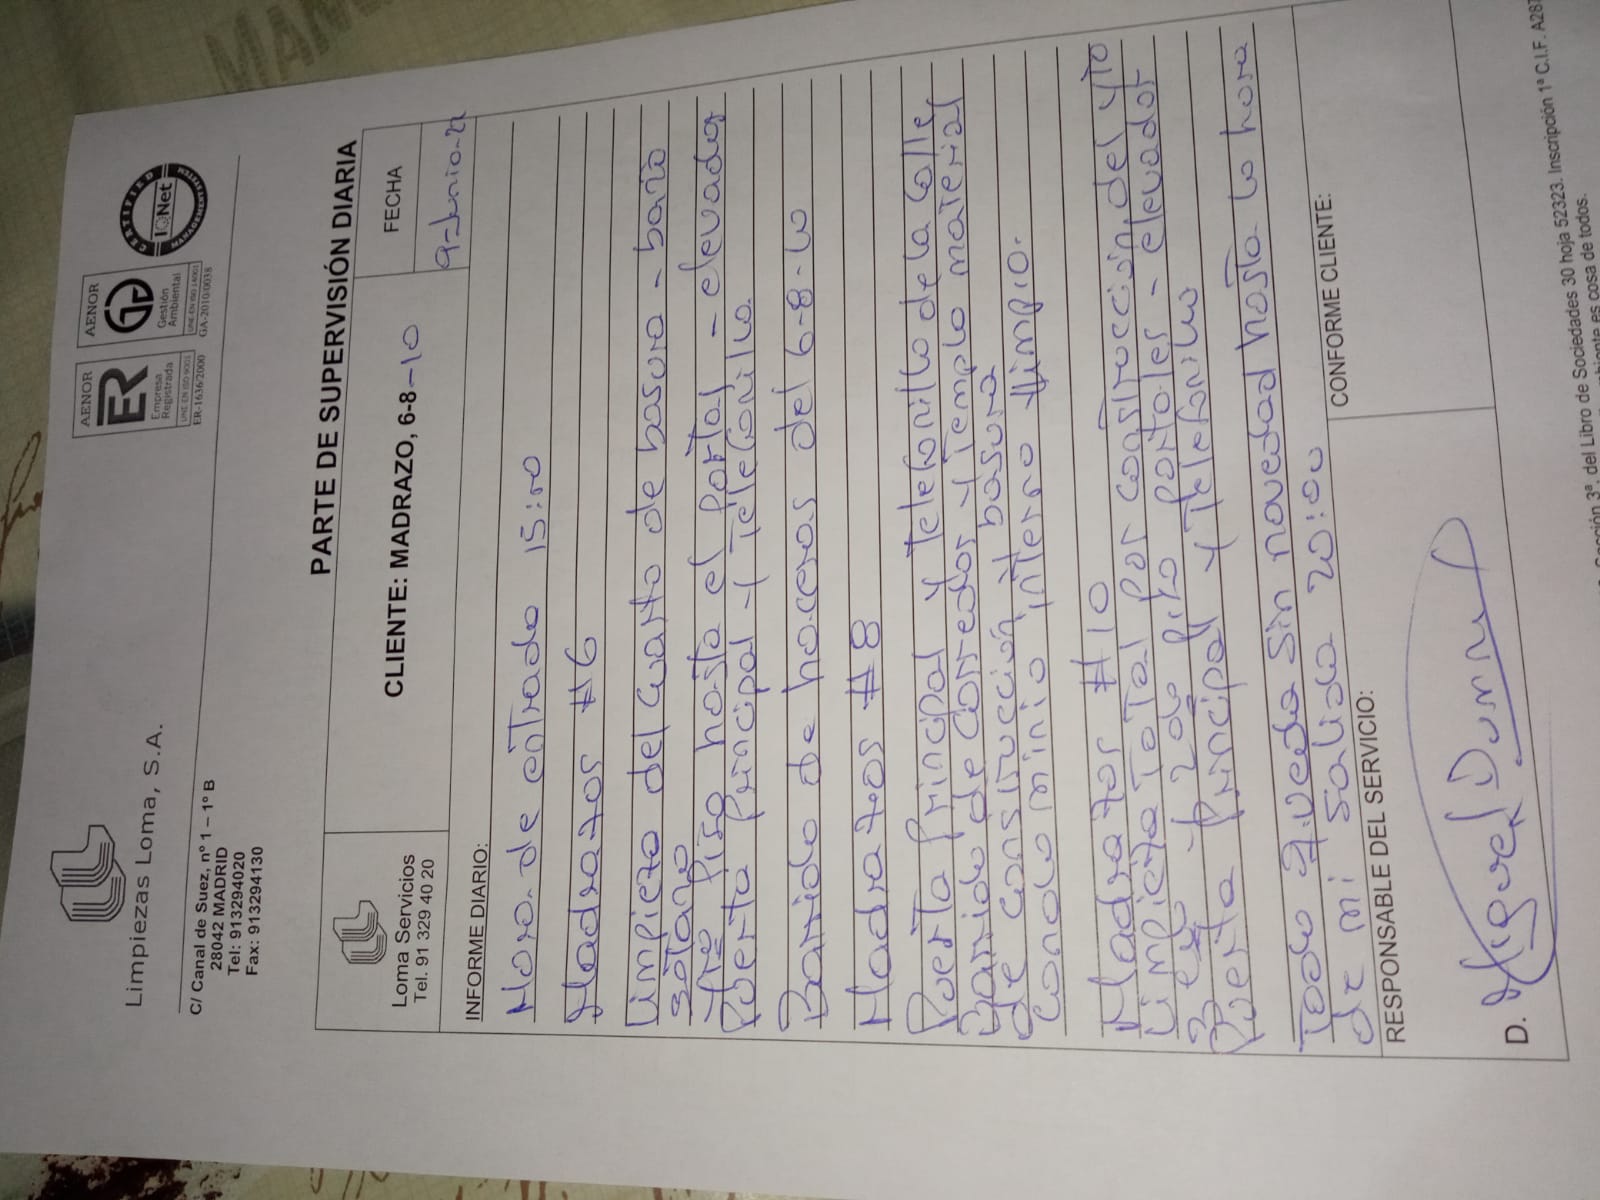 MAN
Limpiezas Loma, S.A.
C/ Canal de Suez, nº 1 – 1º B
28042 MADRID
Tel: 913294020
Fax: 913294130
AENOR
ER
Empresa
Registrada
UNE-EN ISO 9001
ER-1636/2000
AENOR
Gestión
Ambiental
UNE-EN ISO 14001
GA-2010/0038
CERTIFIED
IQNet
MANAGEMENT SYSTEM
PARTE DE SUPERVISIÓN DIARIA
Loma Servicios
Tel. 91 329 40 20
CLIENTE: MADRAZO, 6-8-10
FECHA
9-Junio-22
INFORME DIARIO:
Hora de entrada 15:00
Madrazos #6
Limpieza del cuarto de basura - baño
sotano
4to piso hasta el portal - elevador
Puerta principal y telefonillo.
Barrido de haceras del 6-8-10
Madrazos #8
Puerta principal y telefonillo de la calle,
Barrido de corredor y templo material
de construcción y basura
Condominio intero limpio.
Madrazos #10
Limpieza total por construcción, del 4to
3ero y 2do piso portales - elevador
Puerta principal y telefonillo
Todo queda sin novedad hasta la hora
de mi salida 20:00
RESPONSABLE DEL SERVICIO:
CONFORME CLIENTE:
D. Miguel
Sección 3ª, del Libro de Sociedades 30 hoja 52323. Inscripción 1ª C.I.F. A287
es cosa de todos.